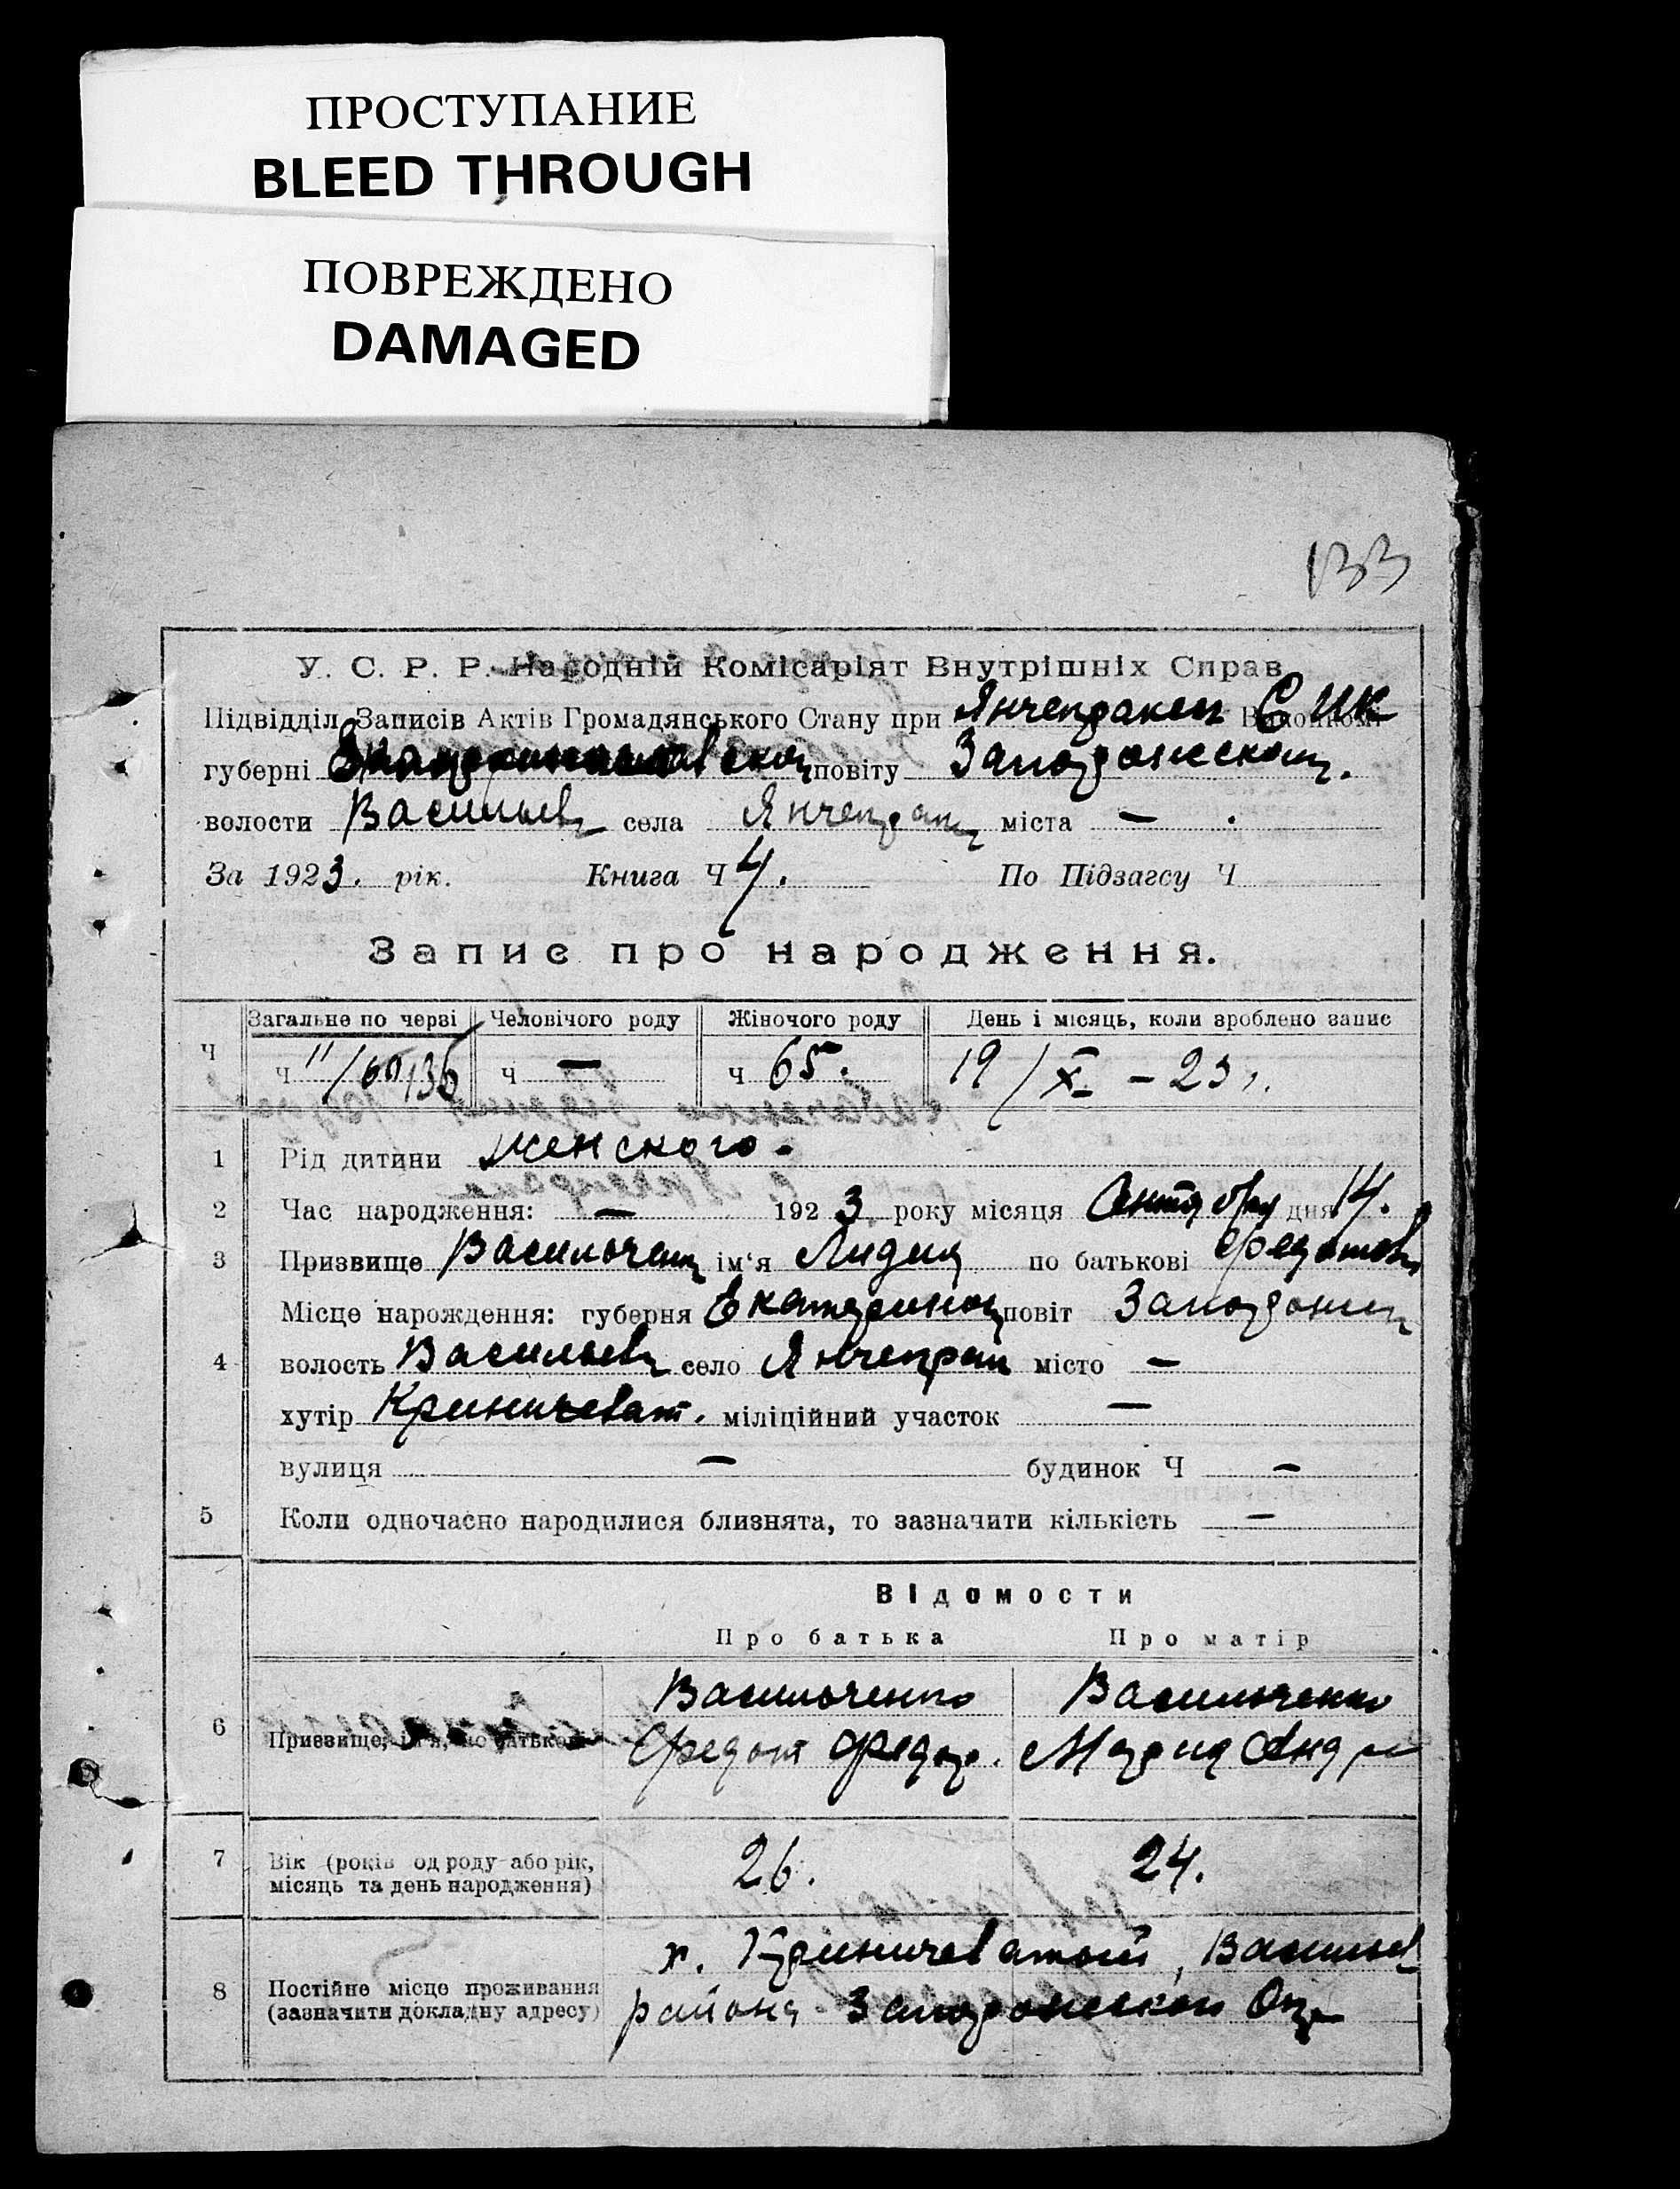 ПРОСТУПАНИЕ
BLEED THROUGH
ПОВРЕЖДЕНО
DAMAGED
133
У. С. Р. Р. Народній Комісаріят Внутрішніх Справ
Підвідділ Записів Актів Громадянського Стану при Янчекракск С ИК
губерні повіту Запорожском.
волости Васильев села Янчекрак міста —
За 1923. рік. Книга Ч 4. По Підзагсу Ч
Запис про народження.
Загальне по черзі Человічого роду Жіночого роду День і місяць, коли зроблено запис
Ч ч ч — ч 65. 19/X – 23 г.
1 Рід дитини женского.
2 Час народження: — 1923 року місяця Сентября дня 14.
3 Призвище Васильченко ім‘я Лидия по батькові Федотов
Місце нарождення: губерня Екатеринос повіт Запорож
4 волость Васильев село Янчекрак місто —
хутір Криничеват. міліційний участок —
вулиця — будинок Ч —
5 Коли одночасно народилися близнята, то зазначити кількість —
Відомости
Про батька Про матір
Васильченко Васильченко
6 Призвище, ім‘я, по батькові Федот Федор. Мария Андр
7 Вік (років од роду або рік, 26. 24.
місяць та день народження)
х. Криничеватый, Васильев
8 Постійне місце проживання
(зазначити докладну адресу) района Запорожской Окр